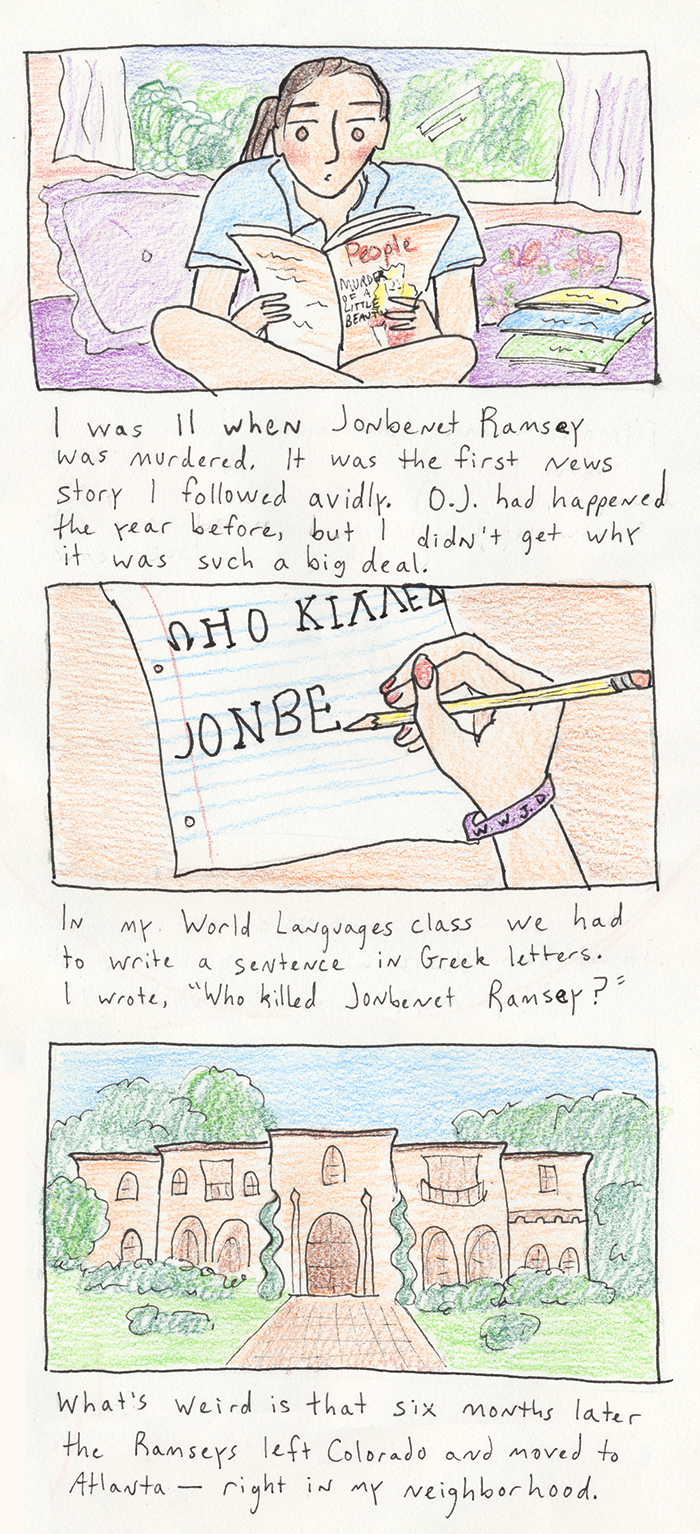 People
MURDER
OF A
LITTLE
BEAUTY
I was 11 when Jonbenet Ramsey
was murdered. It was the first news
story I followed avidly. O.J. had happened
the year before, but I didn't get why
it was such a big deal.
ΩHO KIΛΛED
JONBE
W.W.J.D.
In my World Languages class we had
to write a sentence in Greek letters.
I wrote, "Who killed Jonbenet Ramsey?"
What's weird is that six months later
the Ramseys left Colorado and moved to
Atlanta — right in my neighborhood.